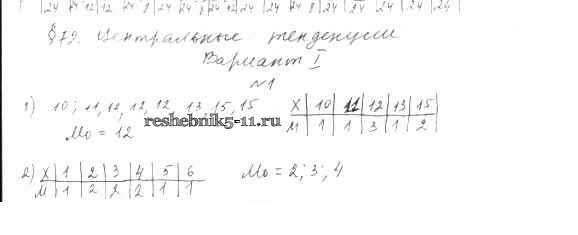 §79. Центральные тенденции
Вариант I
№1
1) 10; 11, 12, 12, 12, 13, 15, 15
X | 10 | 11 | 12 | 13 | 15
M | 1 | 1 | 3 | 1 | 2
Mo = 12
reshebnik5-11.ru
2) X | 1 | 2 | 3 | 4 | 5 | 6
M | 1 | 2 | 2 | 2 | 1 | 1
Mo = 2; 3; 4